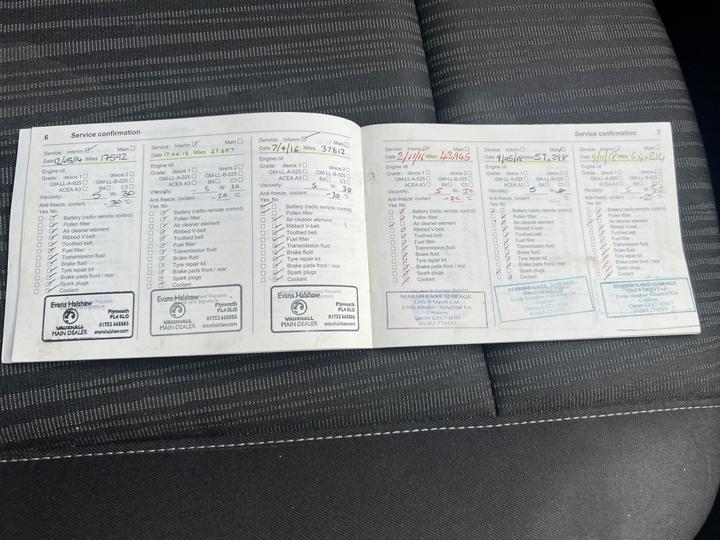 6 Service confirmation
Service: Interim Main
Date 12/05/14 Miles 17592
Engine oil
Grade: dexos 1 dexos 2
GM-LL-A-025 GM-LL-B-025
ACEA A3 B4 C3
Viscosity: 5 W 30
Anti-freeze, coolant -30 °C
Yes No
Battery (radio remote control)
Pollen filter
Air cleaner element
Ribbed V-belt
Toothed belt
Fuel filter
Transmission fluid
Brake fluid
Tyre repair kit
Brake pads front / rear
Spark plugs
Coolant
Evans Halshaw
VAUXHALL
MAIN DEALER
Plymouth
PL4 0LG
01752 668886
evanshalshaw.com
Service: Interim Main
Date Miles
Engine oil
Grade: dexos 1 dexos 2
GM-LL-A-025 GM-LL-B-025
ACEA A3 B4 C3
Viscosity: 5 W 30
Anti-freeze, coolant °C
Yes No
Battery (radio remote control)
Pollen filter
Air cleaner element
Ribbed V-belt
Toothed belt
Fuel filter
Transmission fluid
Brake fluid
Tyre repair kit
Brake pads front / rear
Spark plugs
Coolant
Evans Halshaw
VAUXHALL
MAIN DEALER
Plymouth
PL4 0LG
01752 668886
evanshalshaw.com
Service: Interim Main
Date 7/4/16 Miles 37812
Engine oil
Grade: dexos 1 dexos 2
GM-LL-A-025 GM-LL-B-025
ACEA A3 B4 C3
Viscosity: 5 W 30
Anti-freeze, coolant -30 °C
Yes No
Battery (radio remote control)
Pollen filter
Air cleaner element
Ribbed V-belt
Toothed belt
Fuel filter
Transmission fluid
Brake fluid
Tyre repair kit
Brake pads front / rear
Spark plugs
Coolant
Evans Halshaw
VAUXHALL
MAIN DEALER
Plymouth
PL4 0LG
01752 668886
evanshalshaw.com
Service confirmation 7
Service: Interim Main
Date Miles 43,945
Engine oil
Grade: dexos 1 dexos 2
GM-LL-A-025 GM-LL-B-025
ACEA A3 B4 C3
Viscosity: 5 W 30
Anti-freeze, coolant °C
Yes No
Battery (radio remote control)
Pollen filter
Air cleaner element
Ribbed V-belt
Toothed belt
Fuel filter
Transmission fluid
Brake fluid
Tyre repair kit
Brake pads front / rear
Spark plugs
Coolant
MARSH LANE GARAGE
Service: Interim Main
Date 9/05/18 Miles 57,298
Engine oil
Grade: dexos 1 dexos 2
GM-LL-A-025 GM-LL-B-025
ACEA A3 B4 C3
Viscosity: 5 W
Anti-freeze, coolant °C
Yes No
Battery (radio remote control)
Pollen filter
Air cleaner element
Ribbed V-belt
Toothed belt
Fuel filter
Transmission fluid
Brake fluid
Tyre repair kit
Brake pads front / rear
Spark plugs
Coolant
Service: Interim Main
Date Miles
Engine oil
Grade: dexos 1 dexos 2
GM-LL-A-025 GM-LL-B-025
ACEA A3 B4 C3
Viscosity:
Anti-freeze, coolant °C
Yes No
Battery (radio remote control)
Pollen filter
Air cleaner element
Ribbed V-belt
Toothed belt
Fuel filter
Transmission fluid
Brake fluid
Tyre repair kit
Brake pads front / rear
Spark plugs
Coolant